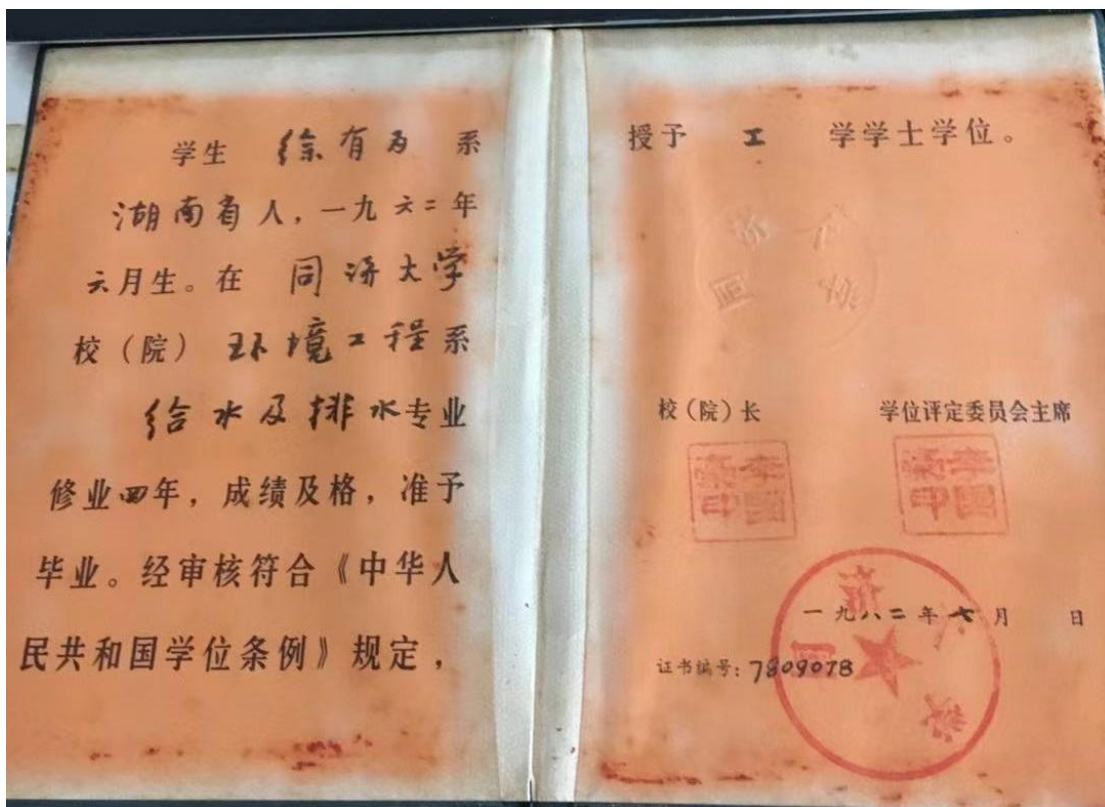 学生 徐有为 系
湖南省人，一九六二年
六月生。在 同济大学
校（院） 环境工程系
给水及排水专业
修业四年，成绩及格，准予
毕业。经审核符合《中华人
民共和国学位条例》规定，
授予 工 学学士学位。
校（院）长 学位评定委员会主席
李国豪印 李国豪印
一九八二年七月 日
证书编号：7809078
同济大学